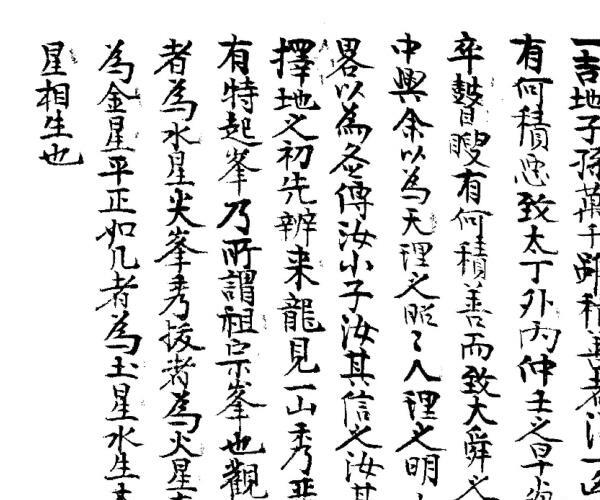 一吉地子孫萬千雖積善者
有何積惡致太丁外丙仲壬之早
卒瞽瞍有何積善而致大舜之
中興余以為天理之昭〻人理之明
畧以為各傳汝小子汝其信之汝其
擇地之初先辨来龍見一山秀
有特起峯乃所謂祖宗峯也觀
者為水星尖峯秀拔者為火星
為金星平正如几者為土星水生
星相生也